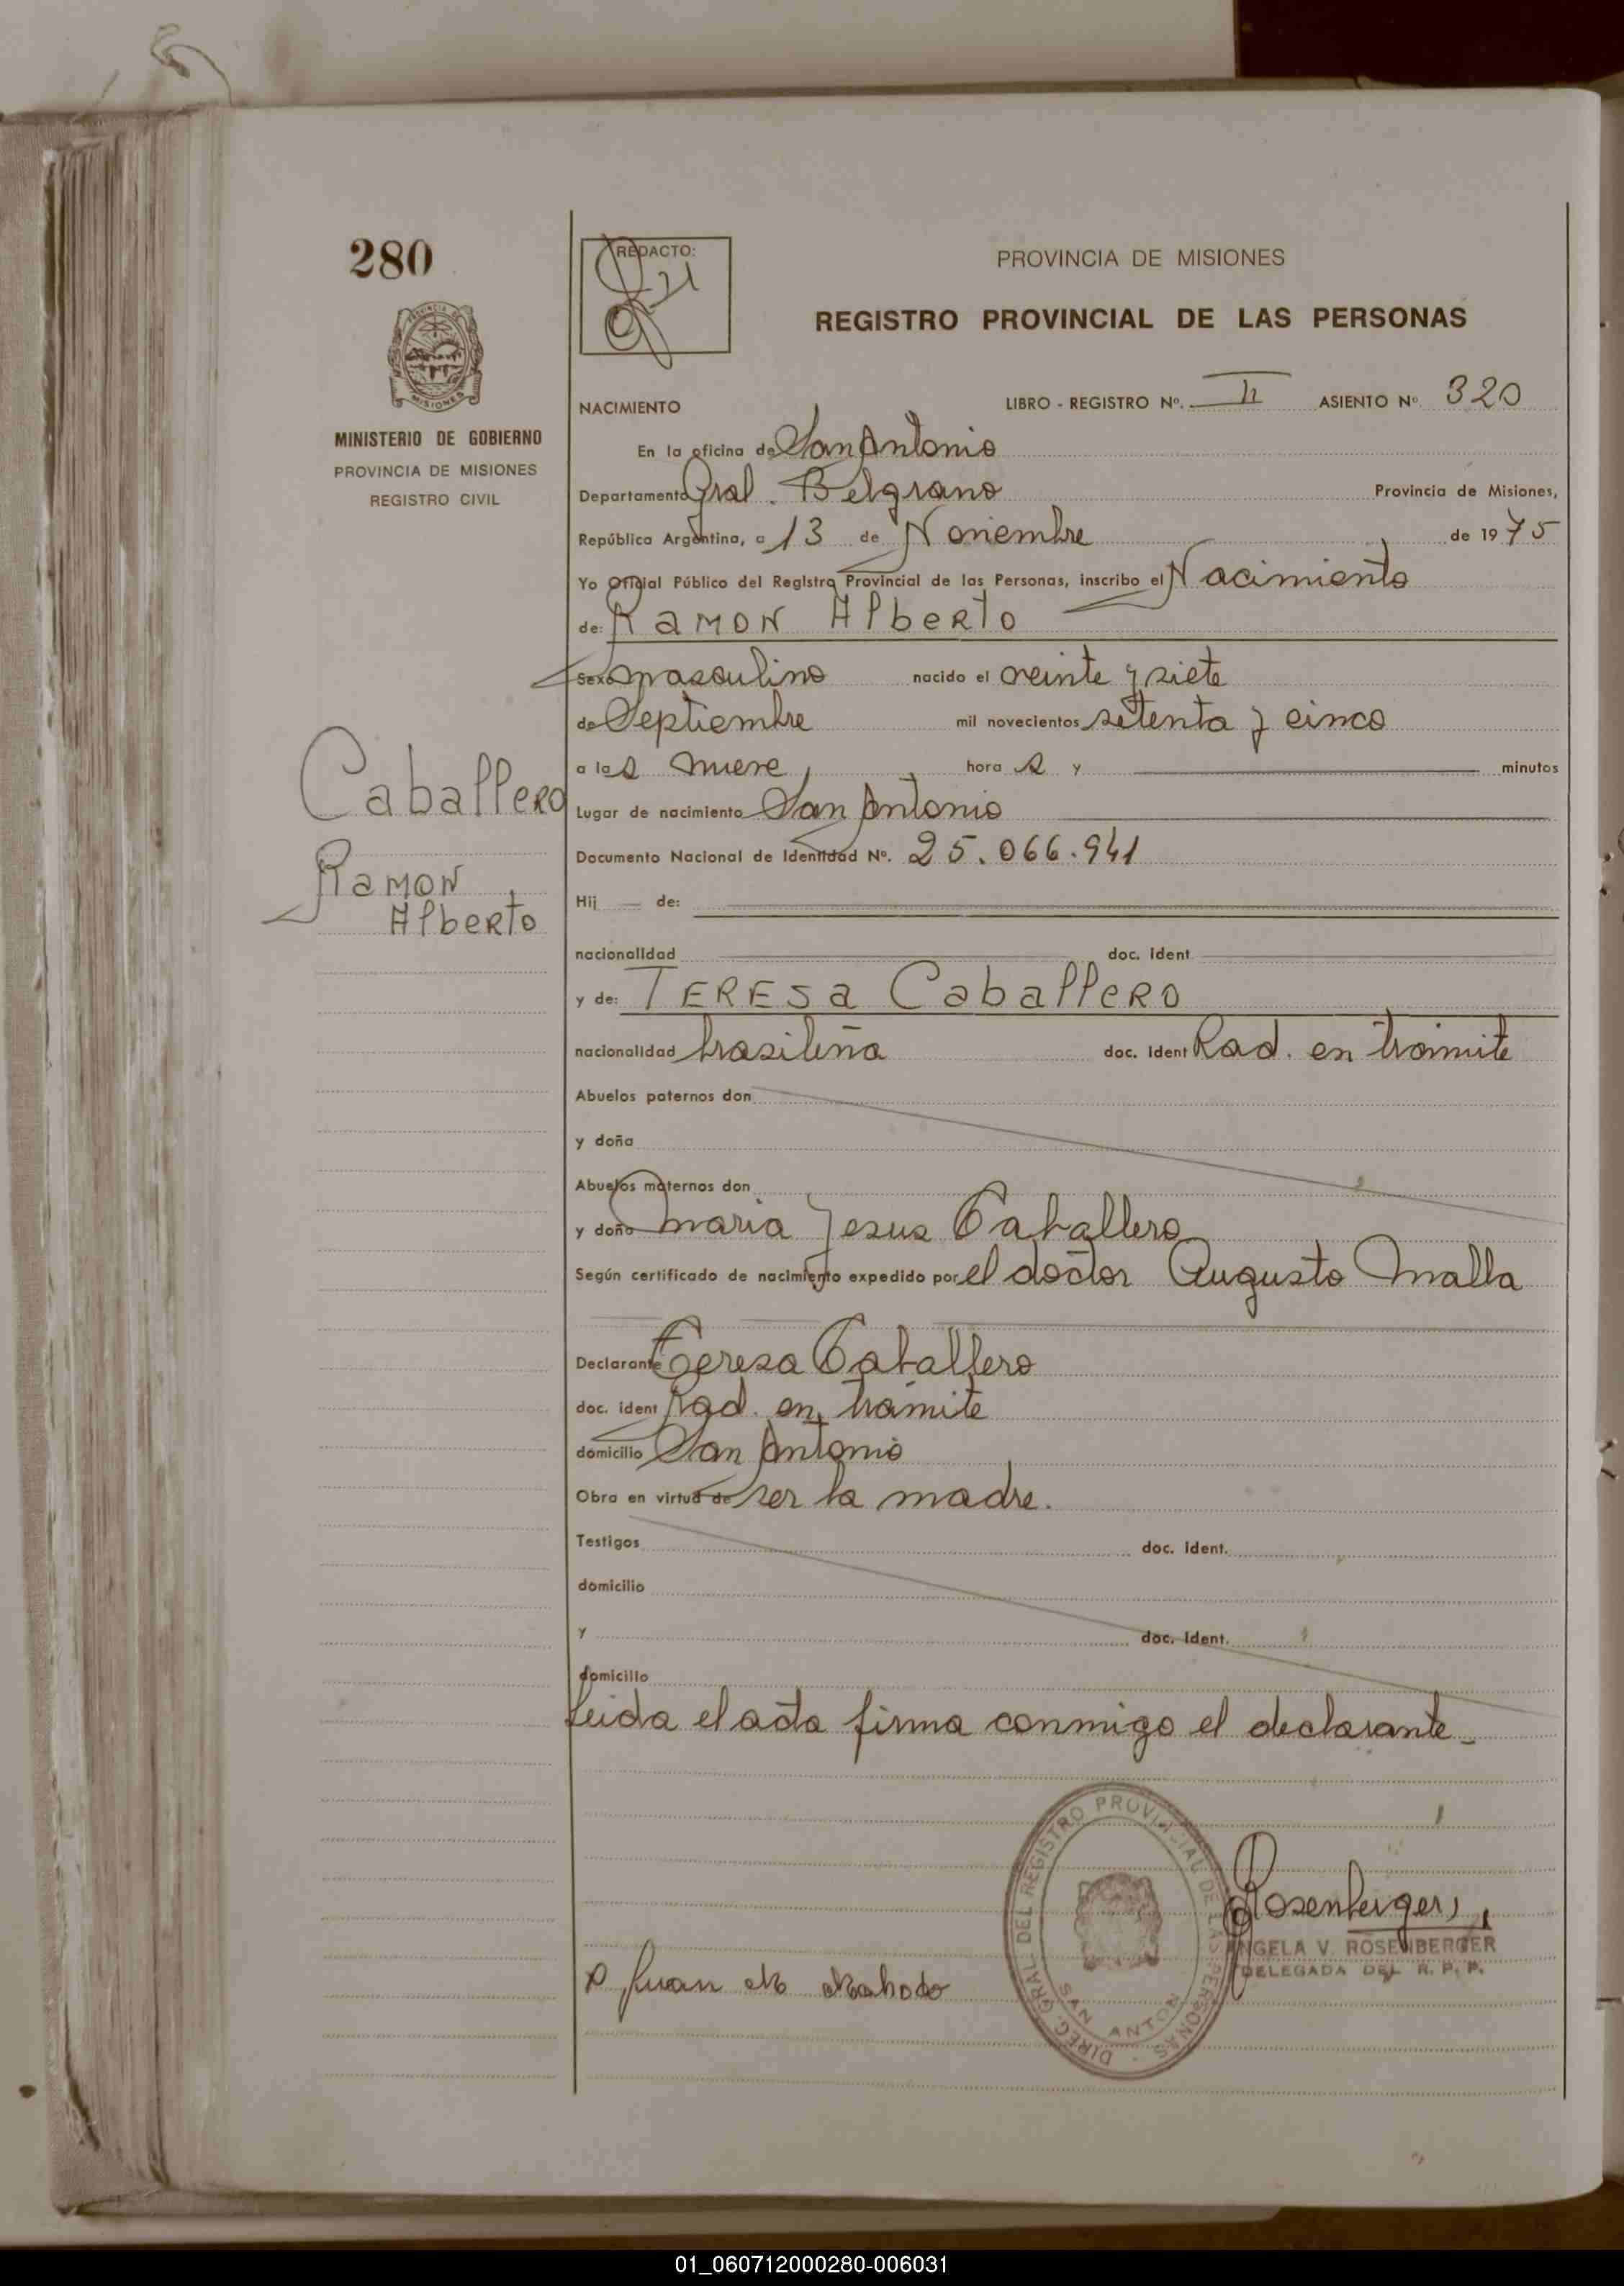 280
REDACTO:
PROVINCIA DE MISIONES
REGISTRO PROVINCIAL DE LAS PERSONAS
MINISTERIO DE GOBIERNO
PROVINCIA DE MISIONES
REGISTRO CIVIL
NACIMIENTO
LIBRO - REGISTRO Nº. II ASIENTO Nº 320
En la oficina de San Antonio
Departamento Gral. Belgrano Provincia de Misiones,
República Argentina, a 13 de Noviembre de 1975
Yo Oficial Público del Registro Provincial de las Personas, inscribo el Nacimiento
de: RAMON Alberto
Sexo masculino nacido el veinte y siete
de Septiembre mil novecientos setenta y cinco
a las nueve, hora s y minutos
Lugar de nacimiento San Antonio
Documento Nacional de Identidad Nº. 25.066.941
Caballero
RAMON
Alberto
Hij de:
nacionalidad doc. ident
y de: TERESA Caballero
nacionalidad brasileña doc. ident Rad. en trámite
Abuelos paternos don
y doña
Abuelos maternos don
y doña Maria Jesus Caballero
Según certificado de nacimiento expedido por el doctor Augusto Malla
Declarante Teresa Caballero
doc. ident Rad. en trámite
domicilio San Antonio
Obra en virtud de ser la madre.
Testigos doc. ident.
domicilio
y doc. ident.
domicilio
Leida el acta firma conmigo el declarante_
DIREC. GRAL. DEL REGISTRO PROVINCIAL DE LAS PERSONAS
SAN ANTON
Rosenberger
ANGELA V. ROSENBERGER
DELEGADA DEL R. P. P.
Juan
01_060712000280-006031